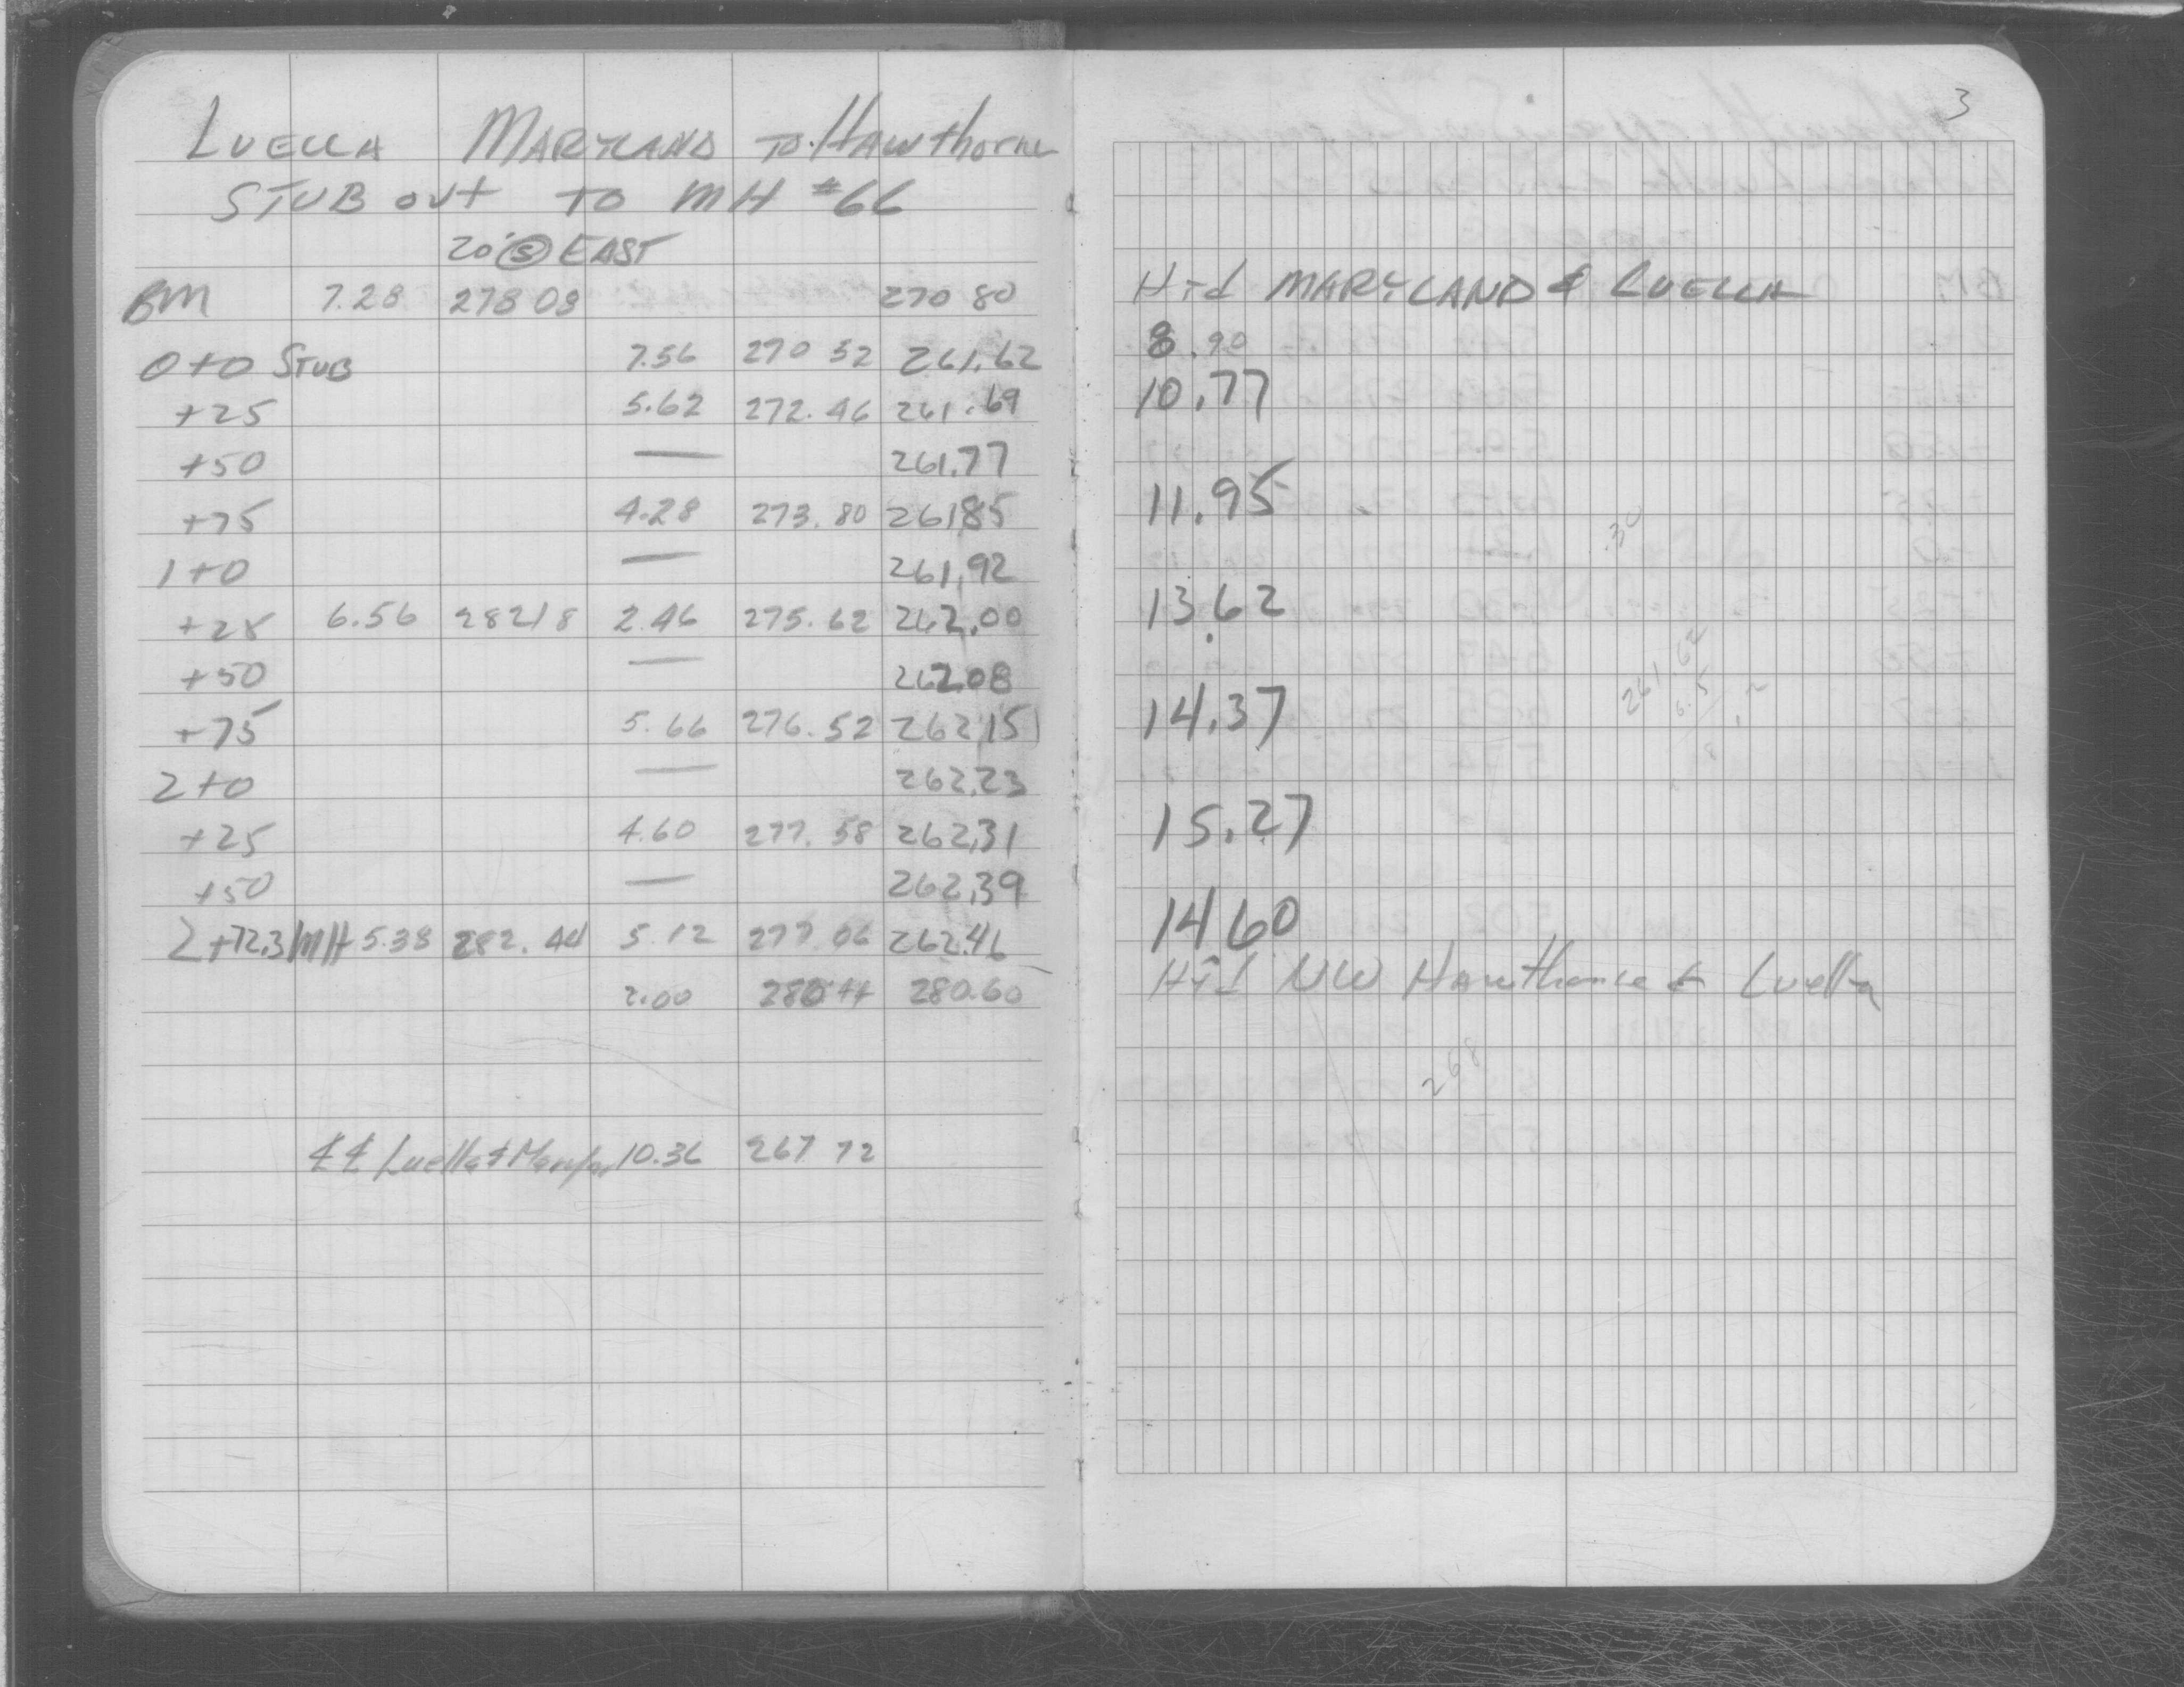 LUELLA MARYLAND TO HAWthorne
STUB OUT TO MH #66
20' @ EAST
BM 7.28 278 08 270 80
0+0 STUB 7.56 270 52 261.62
+25 5.62 272.46 261.69
+50 — 261.77
+75 4.28 273.80 261.85
1+0 — 261.92
+25 6.56 282 18 2.46 275.62 262.00
+50 — 262.08
+75 5.66 276.52 262.15
2+0 — 262.23
+25 4.60 277.58 262.31
+50 — 262.39
2+72.3 MH 5.38 282.44 5.12 277 06 262.46
2.00 280 44 280.60
Luella & 10.36 267 72
3
Hyd MARYLAND & LUELLA
8.90
10.77
11.95
.30
13.62
261.62
6.5
14.37
15.27
14 60
Hyd NW Hawthorne & Luella
268